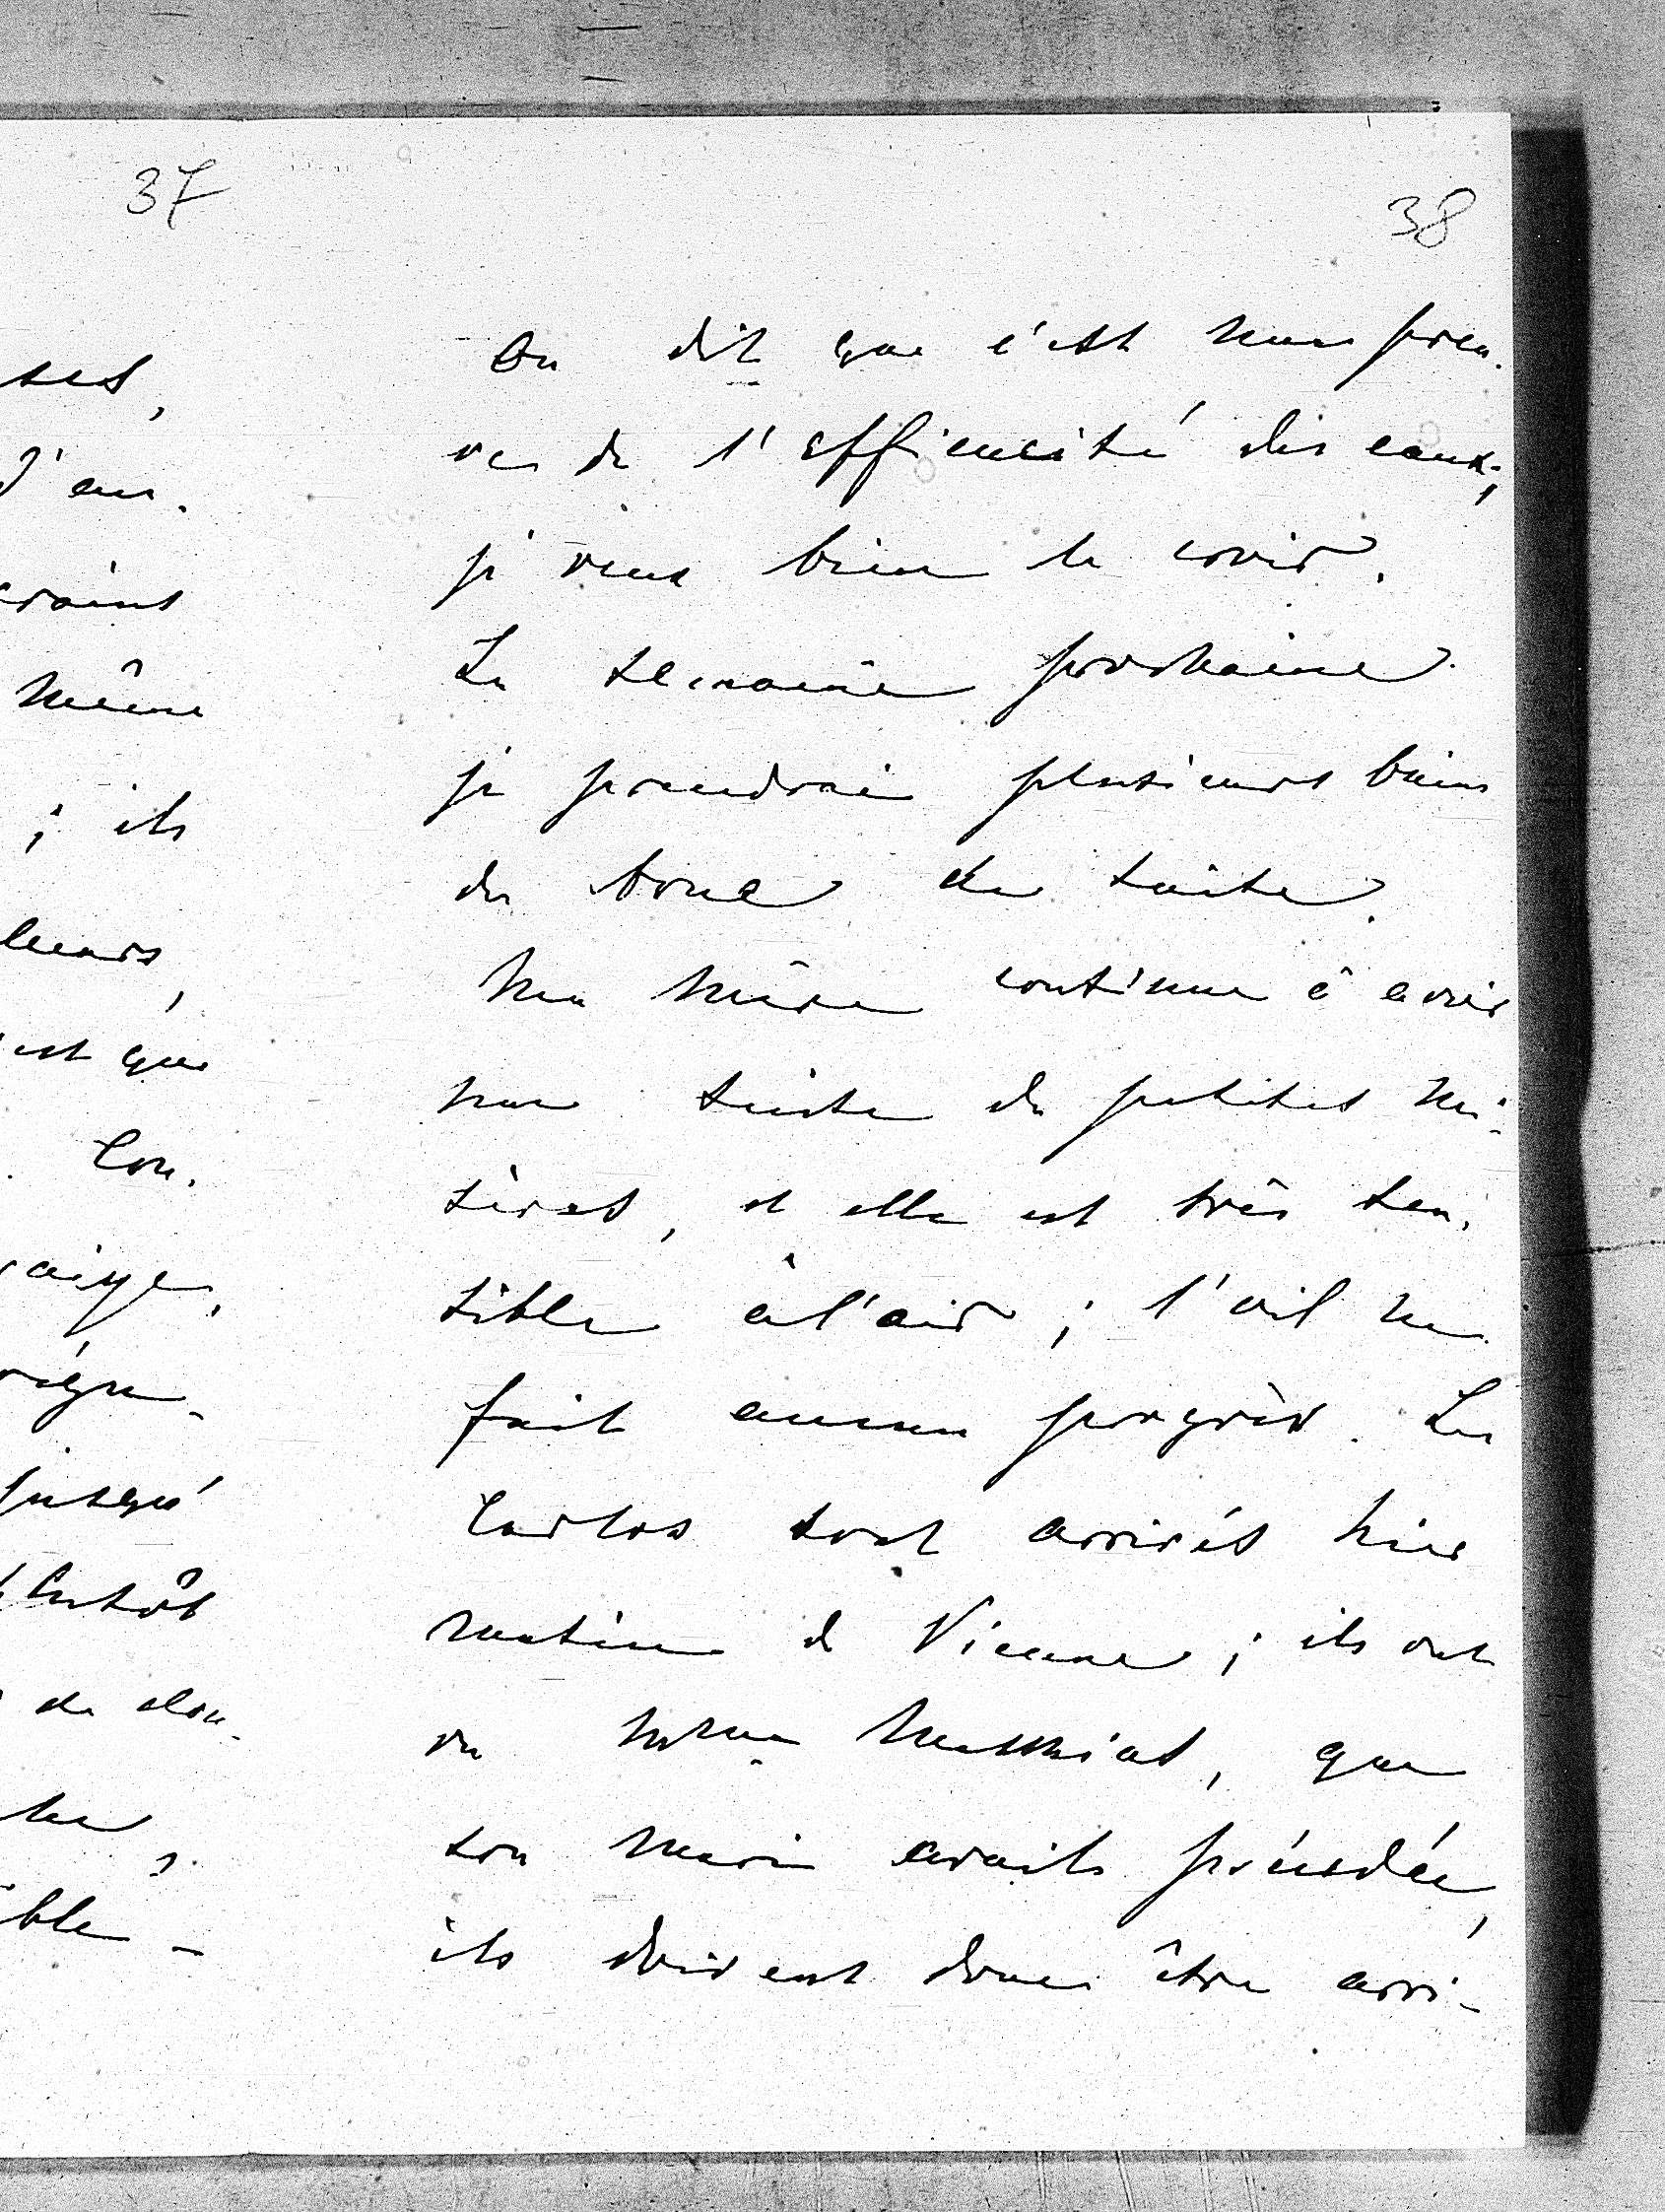 37
ses,
d'au-
crains
même
; ils
leurs,
est que
Con-
aige,
régu-
jusqu'
plutôt
de dou-
he,
ible -
38
On dit que c'est une preu-
ve de l'efficacité des eaux;
je veux bien le croire.
La semaine prochaine
je prendrai plusieurs bains
de boue de suite.
Ma mère continue à avoir
une suite de petites mi-
sères, et elle est très sen-
sible à l'air; l'œil ne
fait aucun progrès. Les
Carlos sont arrivés hier
matin de Vienne; ils ont
vu Mme , que
son mari avait précédée,
ils doivent donc être arri-